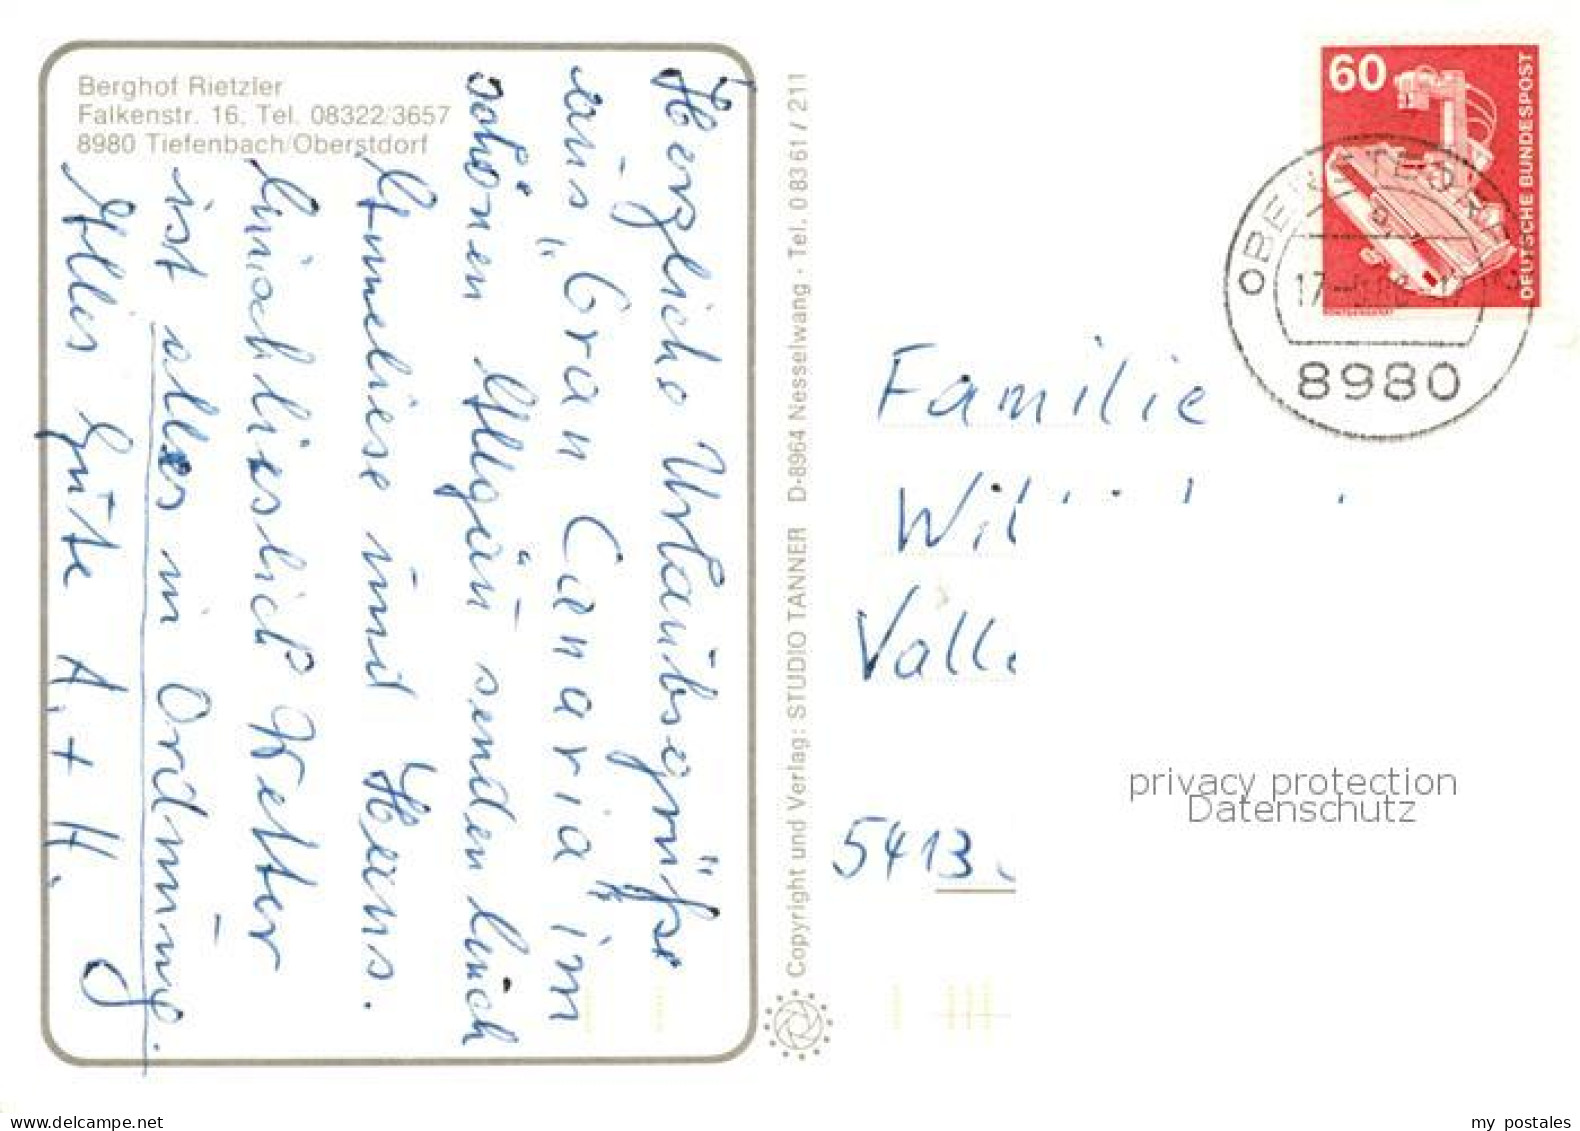 Berghof Rietzler
Falkenstr. 16, Tel. 08322/3657
8980 Tiefenbach/Oberstdorf
Herzliche Urlaubsgrüße
aus „Gran Canaria“ im
schönen Allgäu senden Euch
Anneliese und Hans.
Einschliesslich Wetter
ist alles in Ordnung.
Alles Gute A. + H.
Copyright und Verlag: STUDIO TANNER D-8964 Nesselwang · Tel. 08361/211
60
DEUTSCHE BUNDESPOST
OBERSTDORF
8980
Familie
Wil
Valle
5413
privacy protection
Datenschutz
www.delcampe.net
my postales